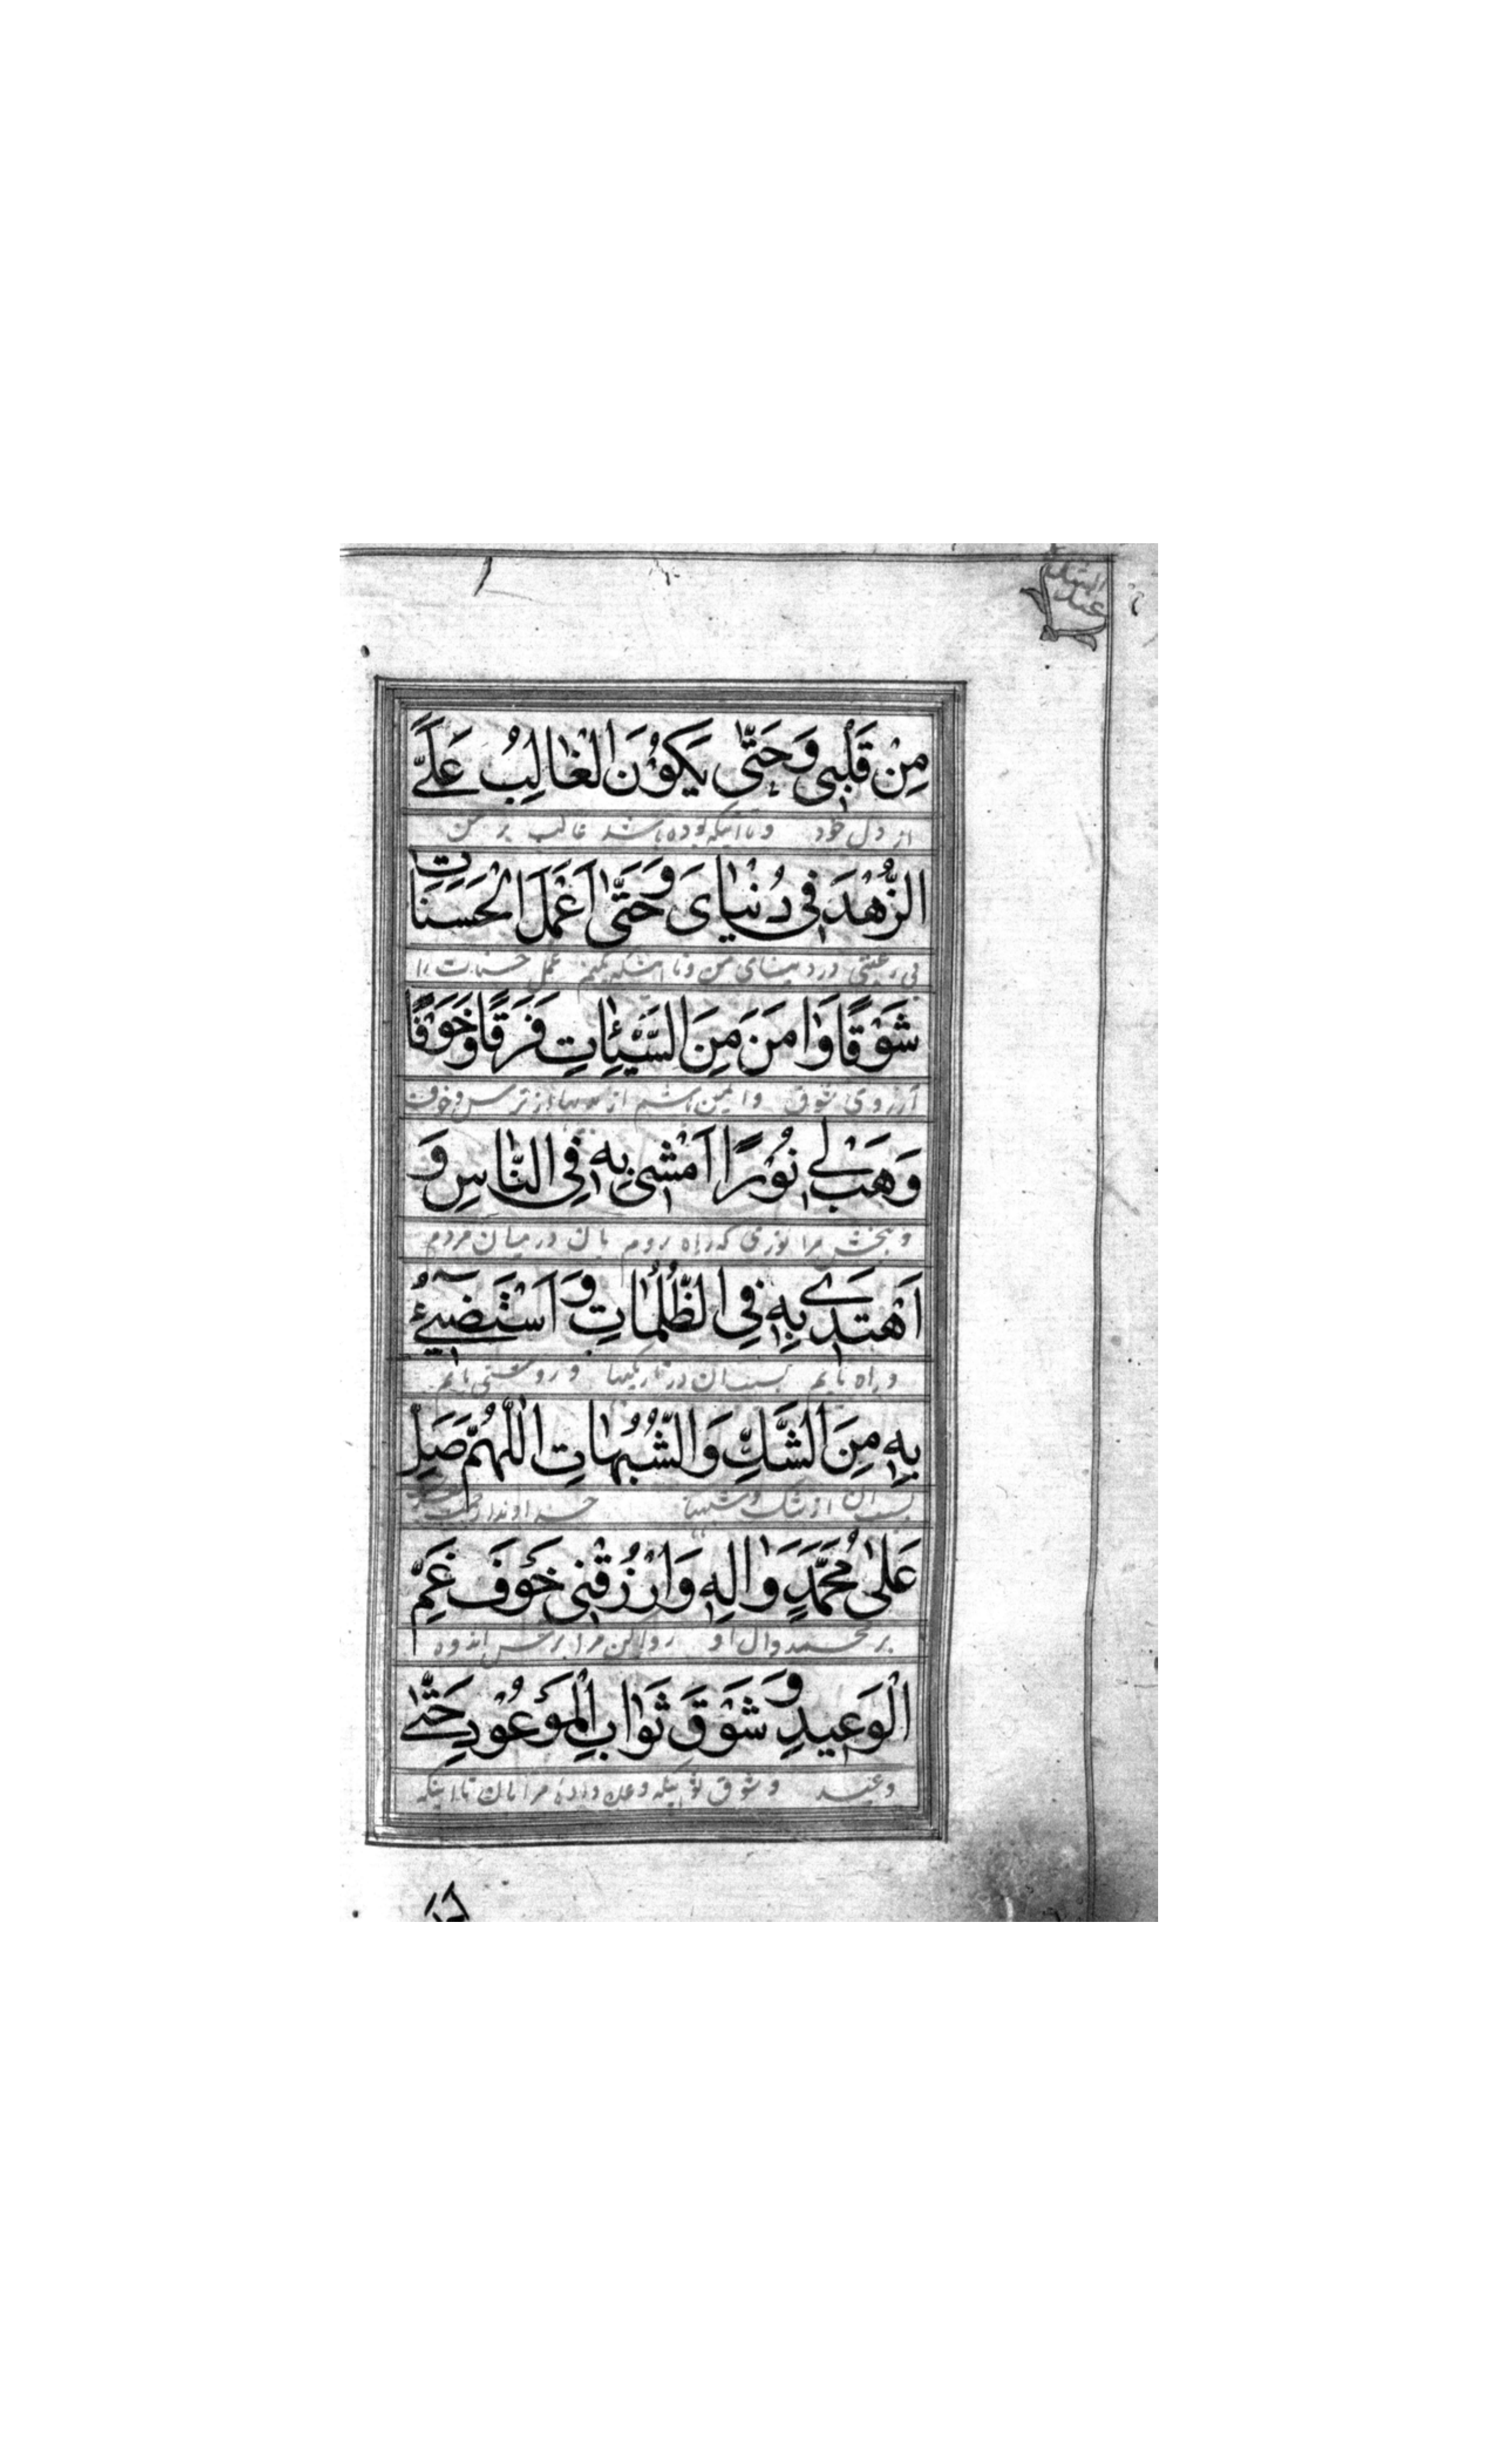 عند الشدة
مِنْ قَلْبِي وَحَتّٰى يَكُوْنَ الْغٰالِبُ عَلَيَّ
از دل خود و تا اینکه بوده باشد غالب بر من
الزُّهْدَ فِي دُنْيٰايَ وَحَتّٰى اَعْمَلَ الْحَسَنٰاتِ
بی رغبتی در دینای من و تا اینکه بکنم عمل حسنات را
شَوْقًا وَاٰمَنَ مِنَ السَّيِّئٰاتِ فَرَقًا وَخَوْفًا
آرزوی شوق و ایمن باشم از بدیها از ترس و خوف
وَهَبْ لِي نُوْرًا اَمْشِي بِهِ فِي النّٰاسِ وَ
و ببخش مرا نوری که راه روم بآن در میان مردم
اَهْتَدِي بِهِ فِي الظُّلُمٰاتِ وَ اَسْتَضِيۤءُ
و راه یابم بسبب آن در تاریکیها و روشنی یابم
بِهِ مِنَ الشَّكِّ وَالشُّبُهٰاتِ اَللّٰهُمَّ صَلِّ
بسبب آن از شک و شبهها خداوندا رحمت
عَلىٰ مُحَمَّدٍ وَاٰلِهِ وَارْزُقْنِي خَوْفَ غَمِّ
بر محمد و آل او روزی کن مرا ترس اندوه
الْوَعِيدِ وَ شَوْقَ ثَوٰابِ الْمَوْعُوْدِ حَتّٰى
وعید و شوق ثوابیکه وعده دادهٔ مرا بآن تا اینکه